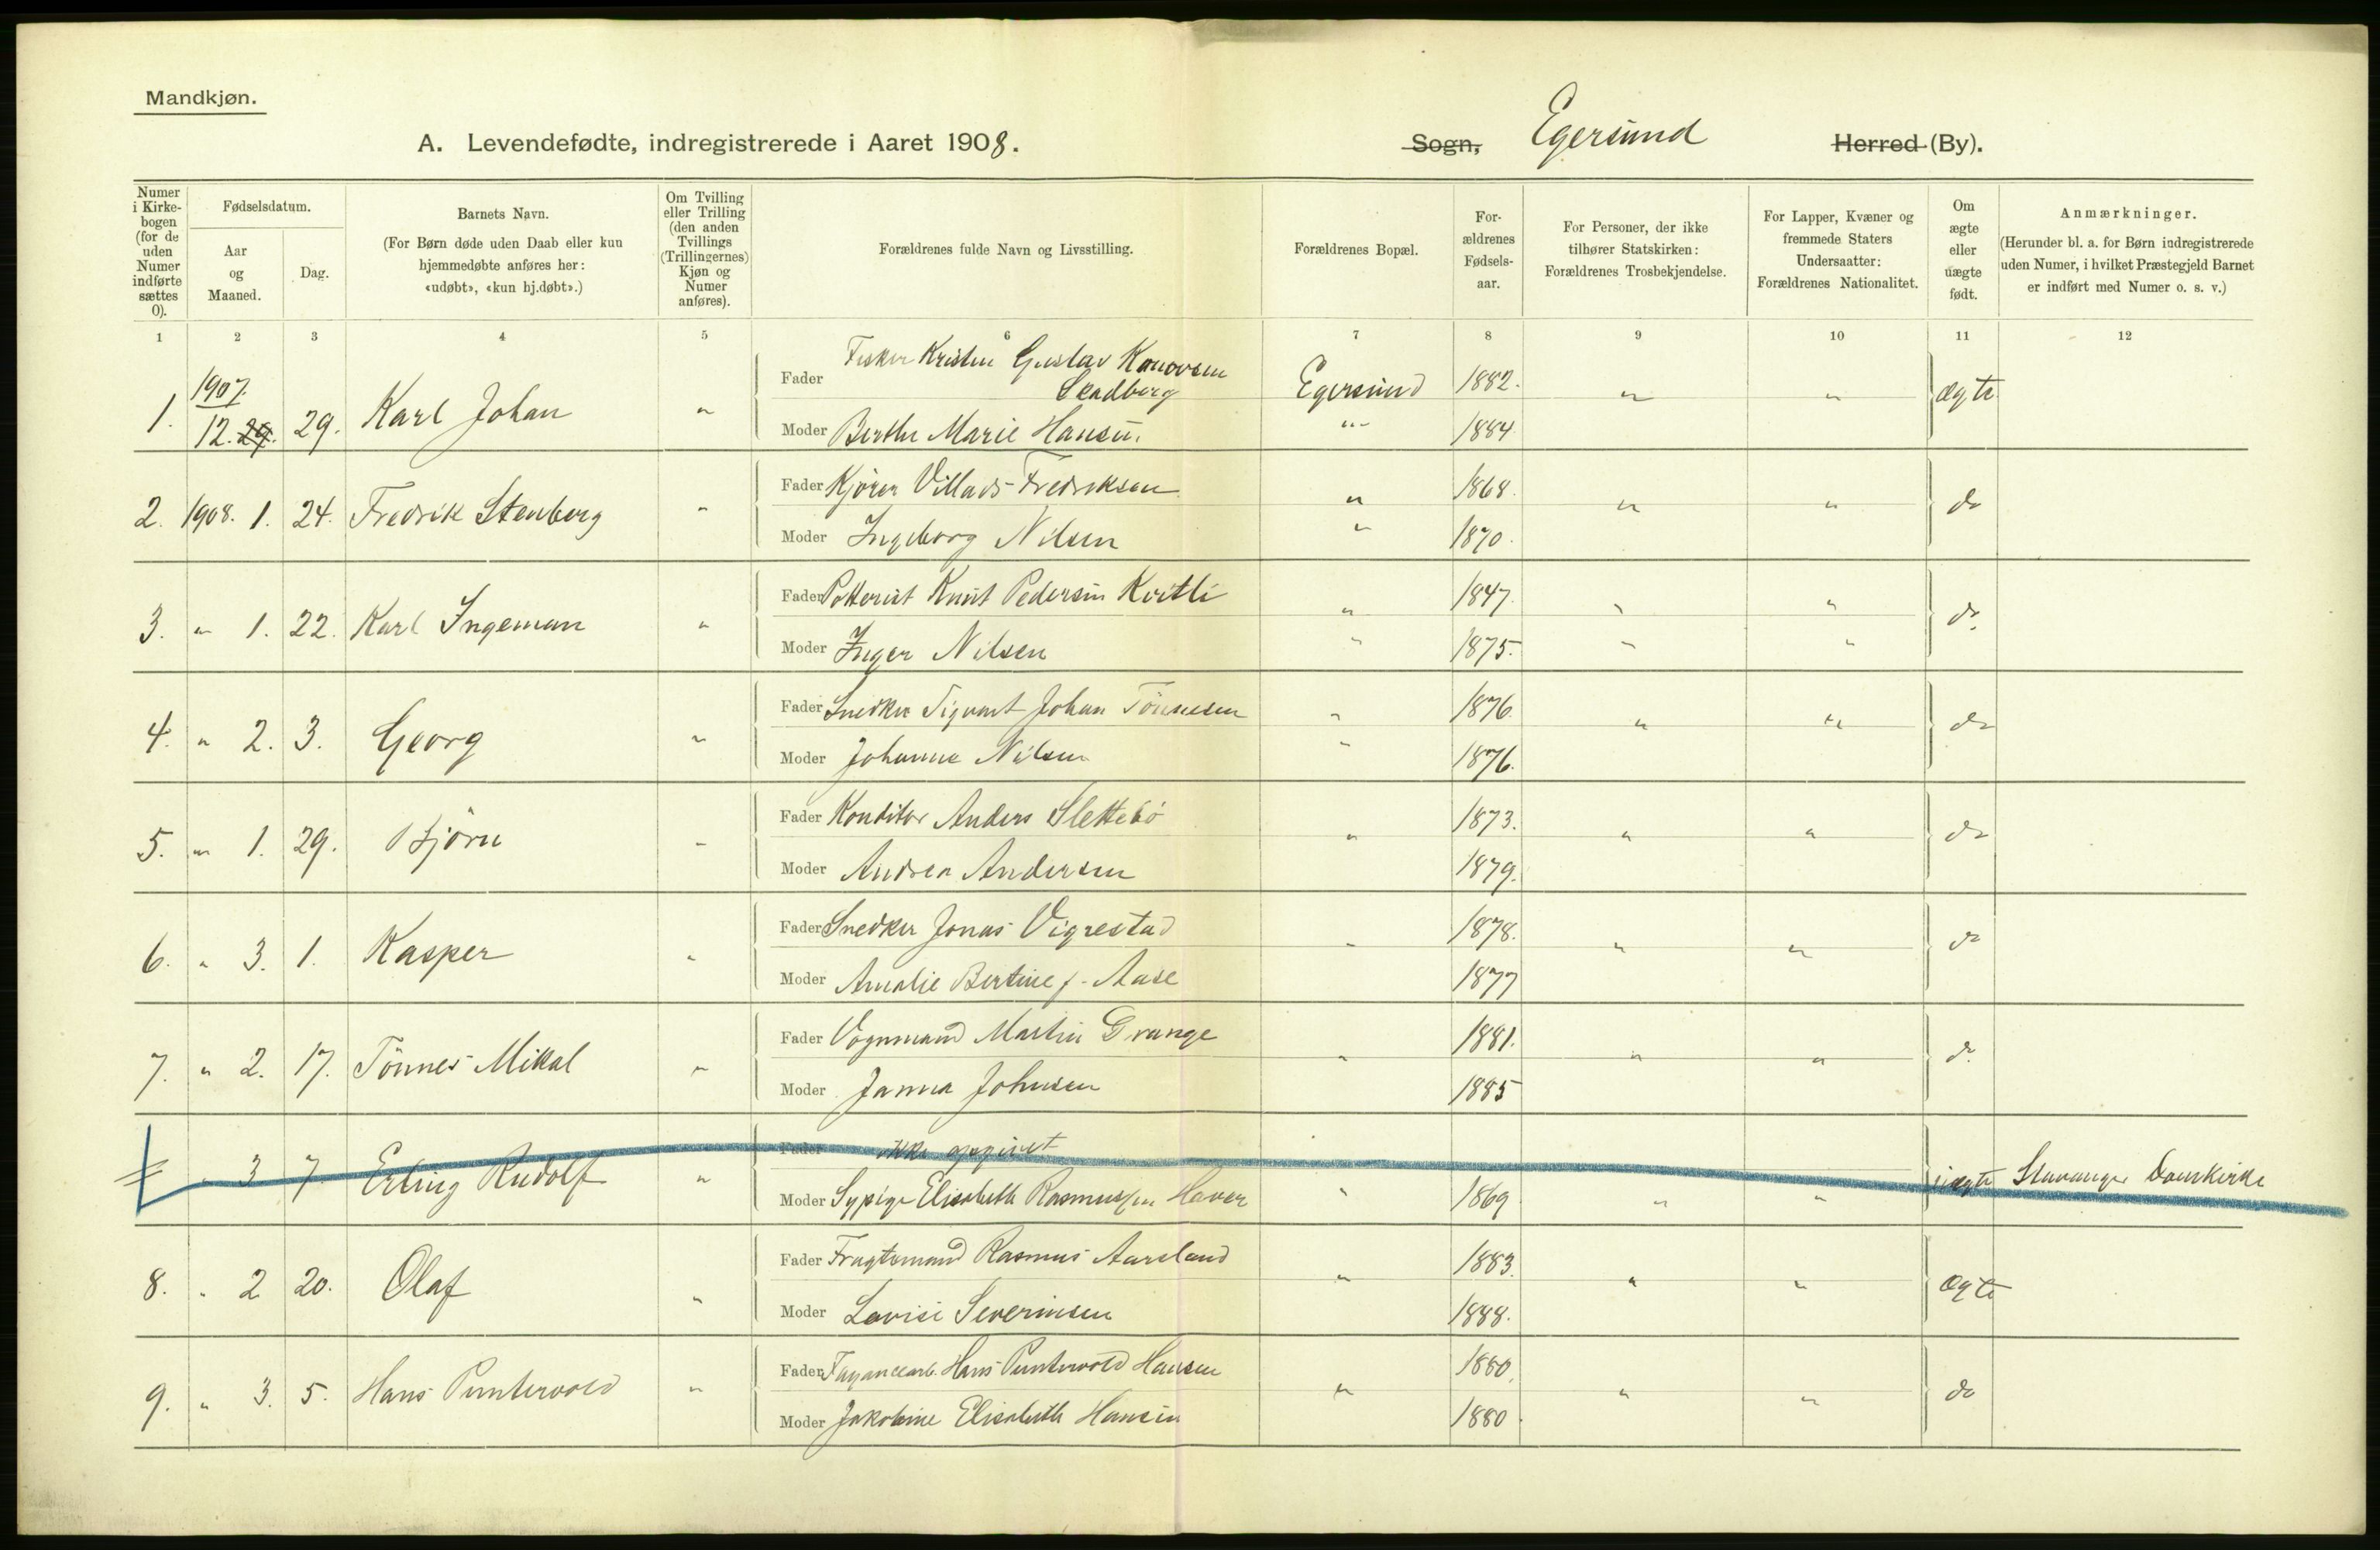 Mandkjøn.
A. Levendefødte, indregistrerede i Aaret 1908.
Sogn, Egersund Herred (By).
Numer i Kirkebogen (for de uden Numer indførte sættes 0).
Fødselsdatum.
Aar og Maaned.
Dag.
Barnets Navn.
(For Børn døde uden Daab eller kun hjemmedøbte anføres her: «udøbt», «kun hj.døbt».)
Om Tvilling eller Trilling (den anden Tvillings (Trillingernes) Kjøn og Numer anføres).
Forældrenes fulde Navn og Livsstilling.
Forældrenes Bopæl.
Forældrenes Fødselsaar.
For Personer, der ikke tilhører Statskirken: Forældrenes Trosbekjendelse.
For Lapper, Kvæner og fremmede Staters Undersaatter: Forældrenes Nationalitet.
Om ægte eller uægte født.
Anmærkninger.
(Herunder bl. a. for Børn indregistrerede uden Numer, i hvilket Præstegjeld Barnet er indført med Numer o. s. v.)
1 2 3 4 5 6 7 8 9 10 11 12
1. 1907. 12. 29. 29. Karl Johan " Fader Fisker Kristen Gustav Egersund 1882. " " ægte
Moder Berthe Marie Hansen. " 1884
2. 1908. 1. 24. Fredrik Stenberg " Fader Kjører Villads Fredriksen " 1868. " " do
Moder Ingeborg Nilsen " 1870.
3. " 1. 22. Karl Ingeman " Fader Knut Pedersen " 1847. " " do.
Moder Inger Nilsen " 1875. " "
4. " 2. 3. Georg " Fader Snedker Sigvart Johan Tönnesen " 1876. " " do
Moder Johanne Nilsen " 1876.
5. " 1. 29. Björn " Fader Konditor Anders Slettebö " 1873. " " do
Moder Andrea Andersen 1879.
6. " 3. 1. Kasper " Fader Snedker Jonas Vigrestad " 1878. " " do
Moder Amalie Bertine f. Aase 1877
7. " 2. 17. Tönnes Mikal " Fader Vognmand Martin Grange " 1881. " " do.
Moder Janna Johnsen 1885
" 3 7 Erling Rudolf " Fader ikke opgivet uægte Stavanger Domkirke
Moder Sypige Elisabeth Rasmussen " 1869 " "
8. " 2 20. Olaf " Fader Fragtemand Rasmus Aarsland " 1883. " " ægte
Moder Lovise Severinsen 1888.
9. " 3. 5. Hans Puntervold " Fader Hans Puntervold Hansen " 1880. " " do
Moder Jakobine Elisabeth Hansen 1880.